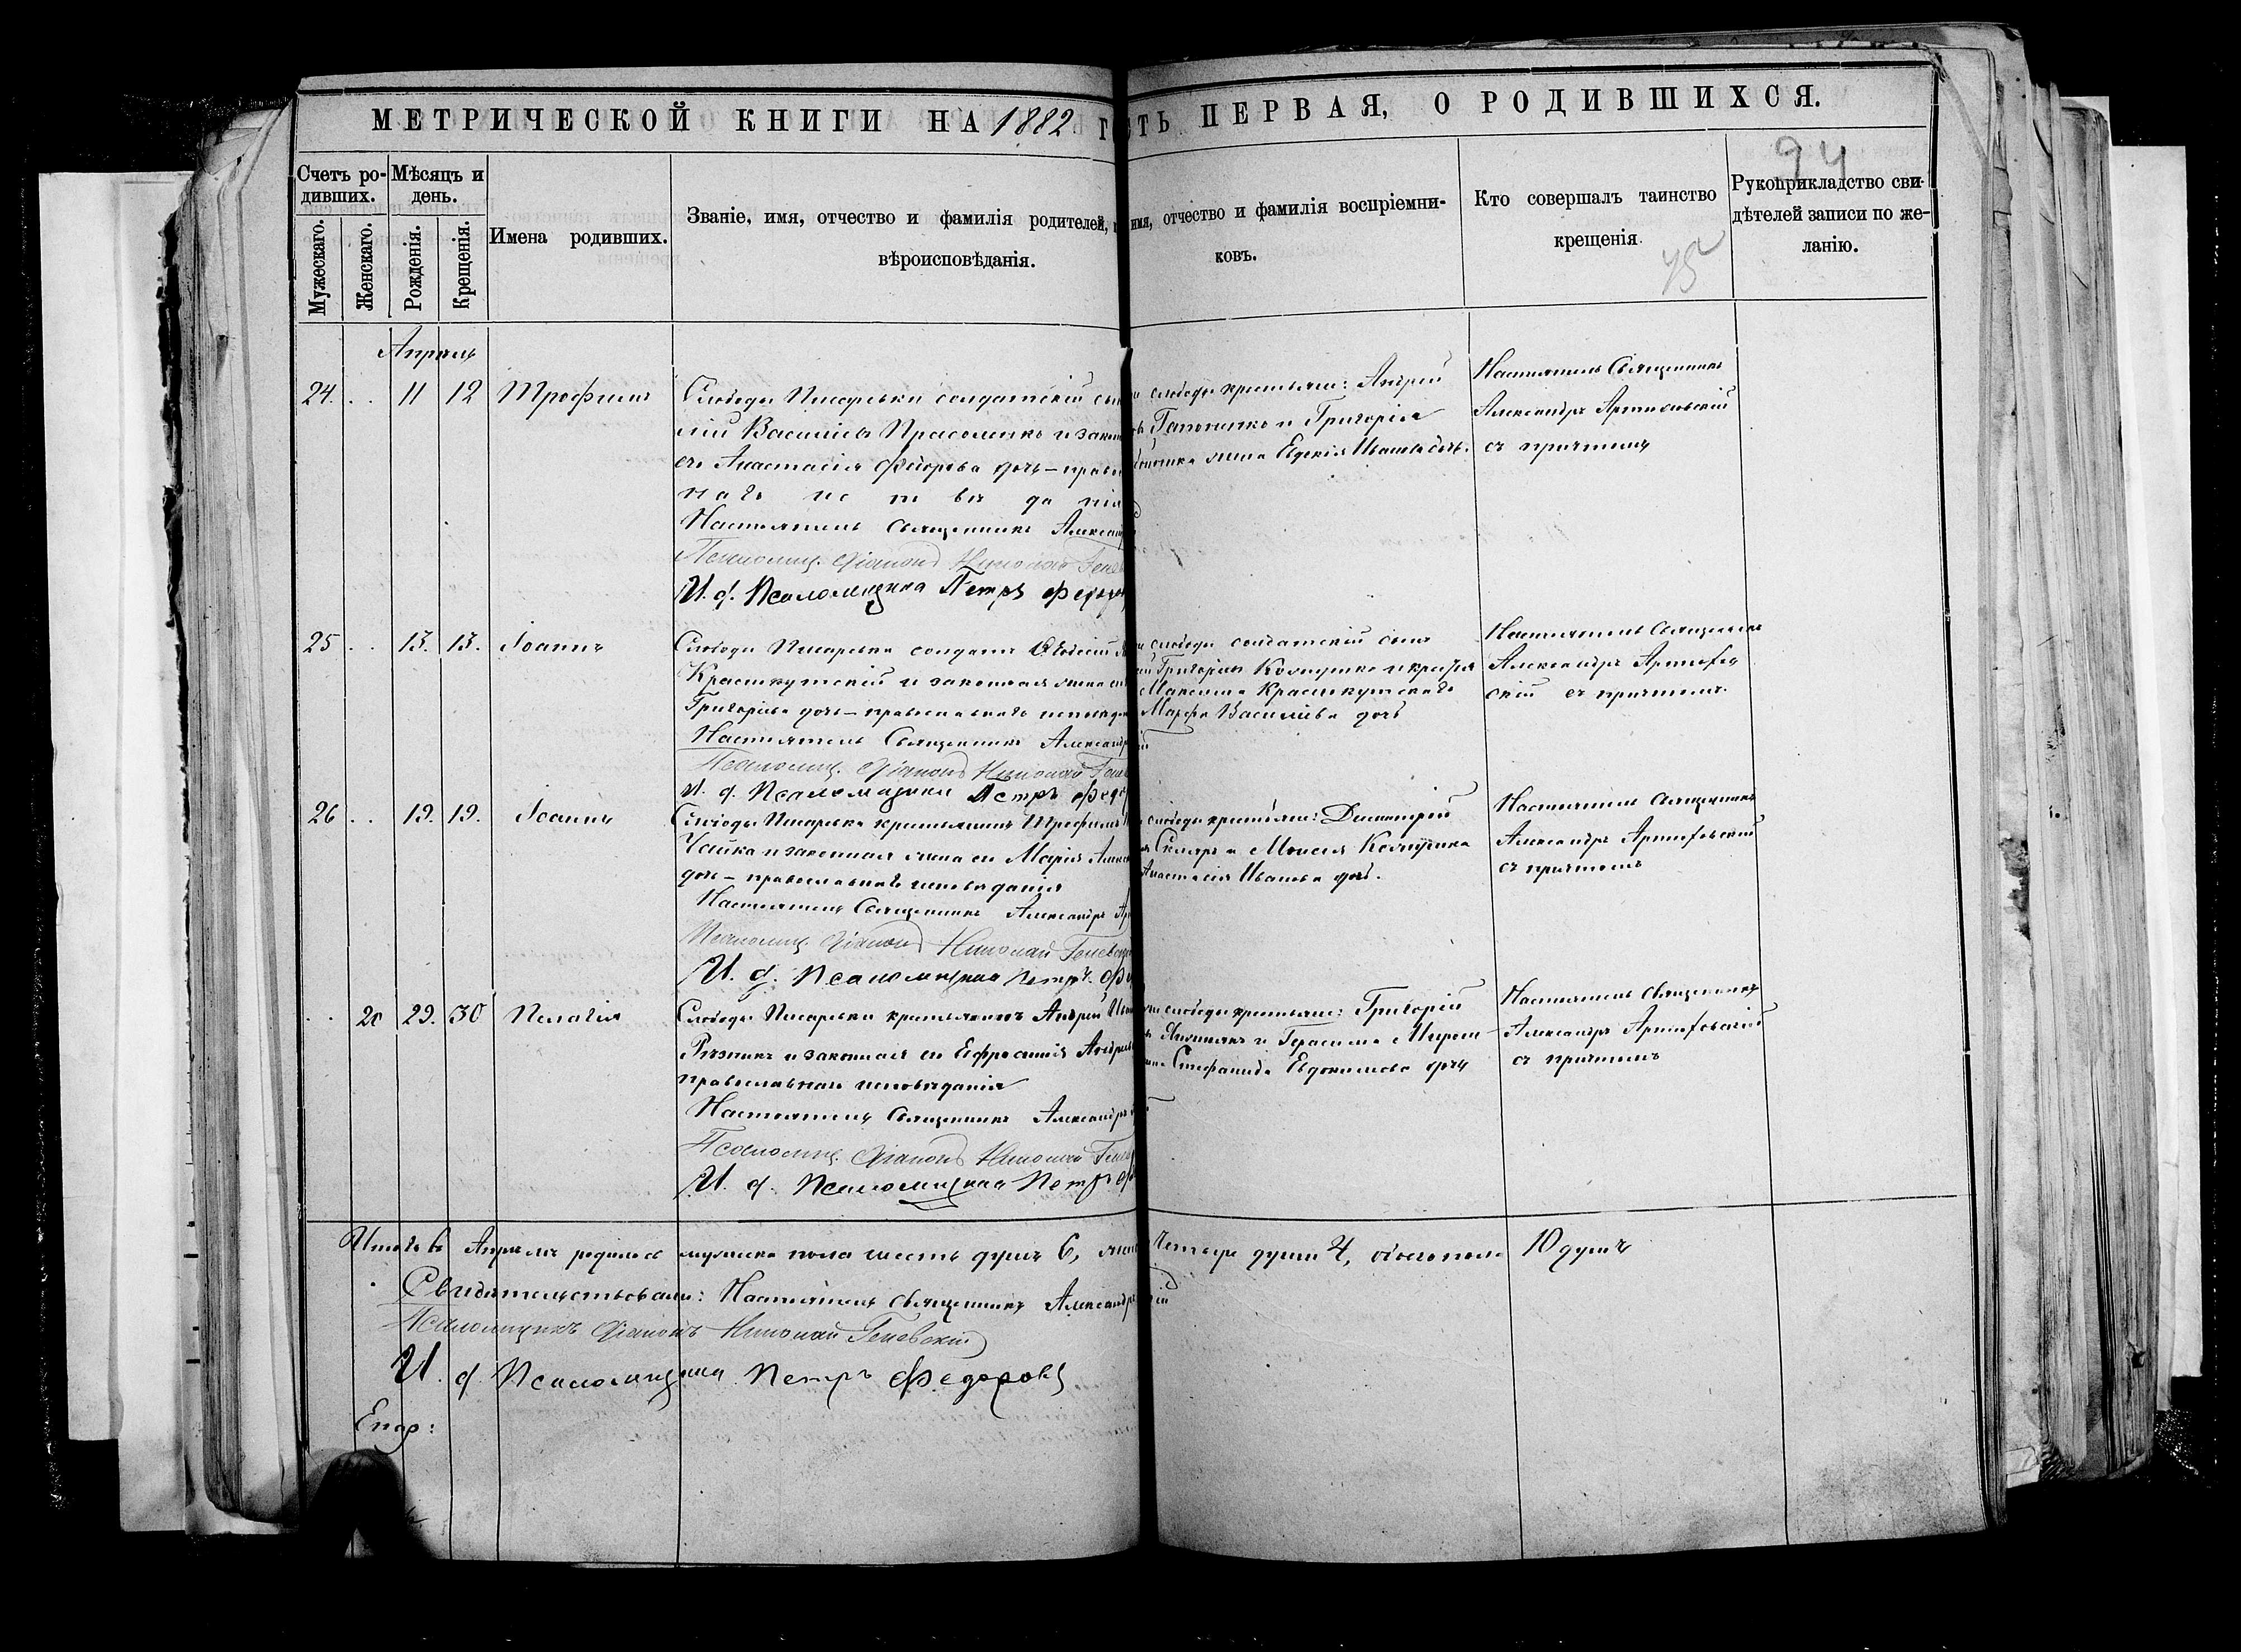 МЕТРИЧЕСКОЙ КНИГИ НА 1882 Г
СТЬ ПЕРВАЯ, О РОДИВШИХСЯ.
94
Счетъ ро-
дивших.
Мужескаго.
Женскаго.
Мѣсяцъ и
день.
Рожденія.
Крещенія.
Имена родивших.
Званіе, имя, отчество и фамилія родителей,
вѣроисповѣданія.
имя, отчество и фамилія воспріемни-
ковъ.
Кто совершалъ таинство
крещенія.
Рукоприкладство сви-
дѣтелей записи по же-
ланію.
Апрель
24. 11 12 Трофимъ
Слободы Писаревки солдатскій сы
лій Васильевъ Прасоленко и закон
его Анастасія Федорова дочь – право
наго
Настоятель Священникъ Александ
Псаломщ. Діаконъ Николай Генев
И. д. Псаломщика Петръ Федор
слободы крестьяне: Андрей
Гапоненко и Григорія
жена Евдокія дочь.
Настоятель Священникъ
Александръ Артюховскій
съ причтомъ
25 13. 13. Іоаннъ
Слободы Писаревка солдатъ
Краснокутскій и законная жена его
Григорьева дочь – православнаго исповѣдан
Настоятель Священникъ Александр
Псаломщ. Діаконъ Николай Генев
И. д. Псаломщика Петръ Федор
слободы солдатскій сынъ
Григорій
Максима Краснокутскаго
Марфа Васильева дочь
Настоятель Священникъ
Александръ Артюхов
скій съ причтомъ.
26 19. 19. Іоаннъ
Слободы Писаревка крестьянинъ Трофимъ
Чайка и законная жена его Марія
дочь – православнаго исповѣданія
Настоятель Священникъ Александръ Ар
Псаломщ. Діаконъ Николай Геневск
И. д. Псаломщика Петръ Фе
слободы крестьяне: Димитрій
Скляръ и Моисея
Анастасія Иванова дочь.
Настоятель Священникъ
Александръ Артюховскій
съ причтомъ
20 29. 30 Пелагія
Слободы Писаревки крестьянинъ Андрей
Рѣзникъ и законная его Ефросинія Андреев
православнаго исповѣданія
Настоятель Священникъ Александръ
Псаломщ. Діаконъ Николай Генев
И. д. Псаломщика Петръ Ф
слободы крестьяне: Григорій
и Герасима
Стефанида Евдокимова дочь
Настоятель Священникъ
Александръ Артюховскій
съ причтомъ
Итого въ Апрѣлѣ родилось мужеска пола шесть душъ 6, жен
Четыре души 4, обоего пола 10 душъ
Свидѣтельствовали: Настоятель Священникъ Александр
Псаломщикъ Діаконъ Николай Геневскій
И. д. Псаломщика Петръ Федоровъ